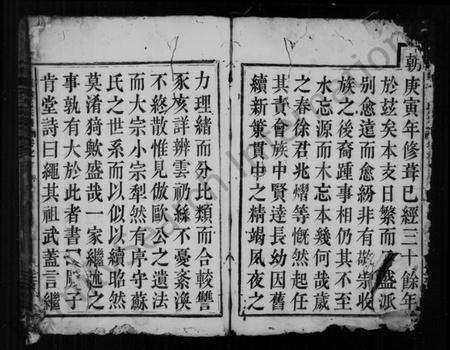 朝庚寅年修葺已經三十餘年
於玆矣本支日繁而 盛派
別愈遠而愈紛非有敬宗收
族之後裔踵事相仍其不至
水忘源而木忘本幾何哉歲
之春徐君兆熠等慨然起任
其責會族中賢達長幼因舊
續新策貫中之精竭夙夜之
力理緒而分比類而合較讐
豕亥詳辨雲礽絲不憂紊渙
不終散惟見倣歐公之遺法
而大宗小宗犁然有序守蘇
氏之世系而以似以續昭然
莫淆猗歟盛哉一家繼述之
事孰有大於此者書 子
肯堂詩曰繩其祖武蓋言繼